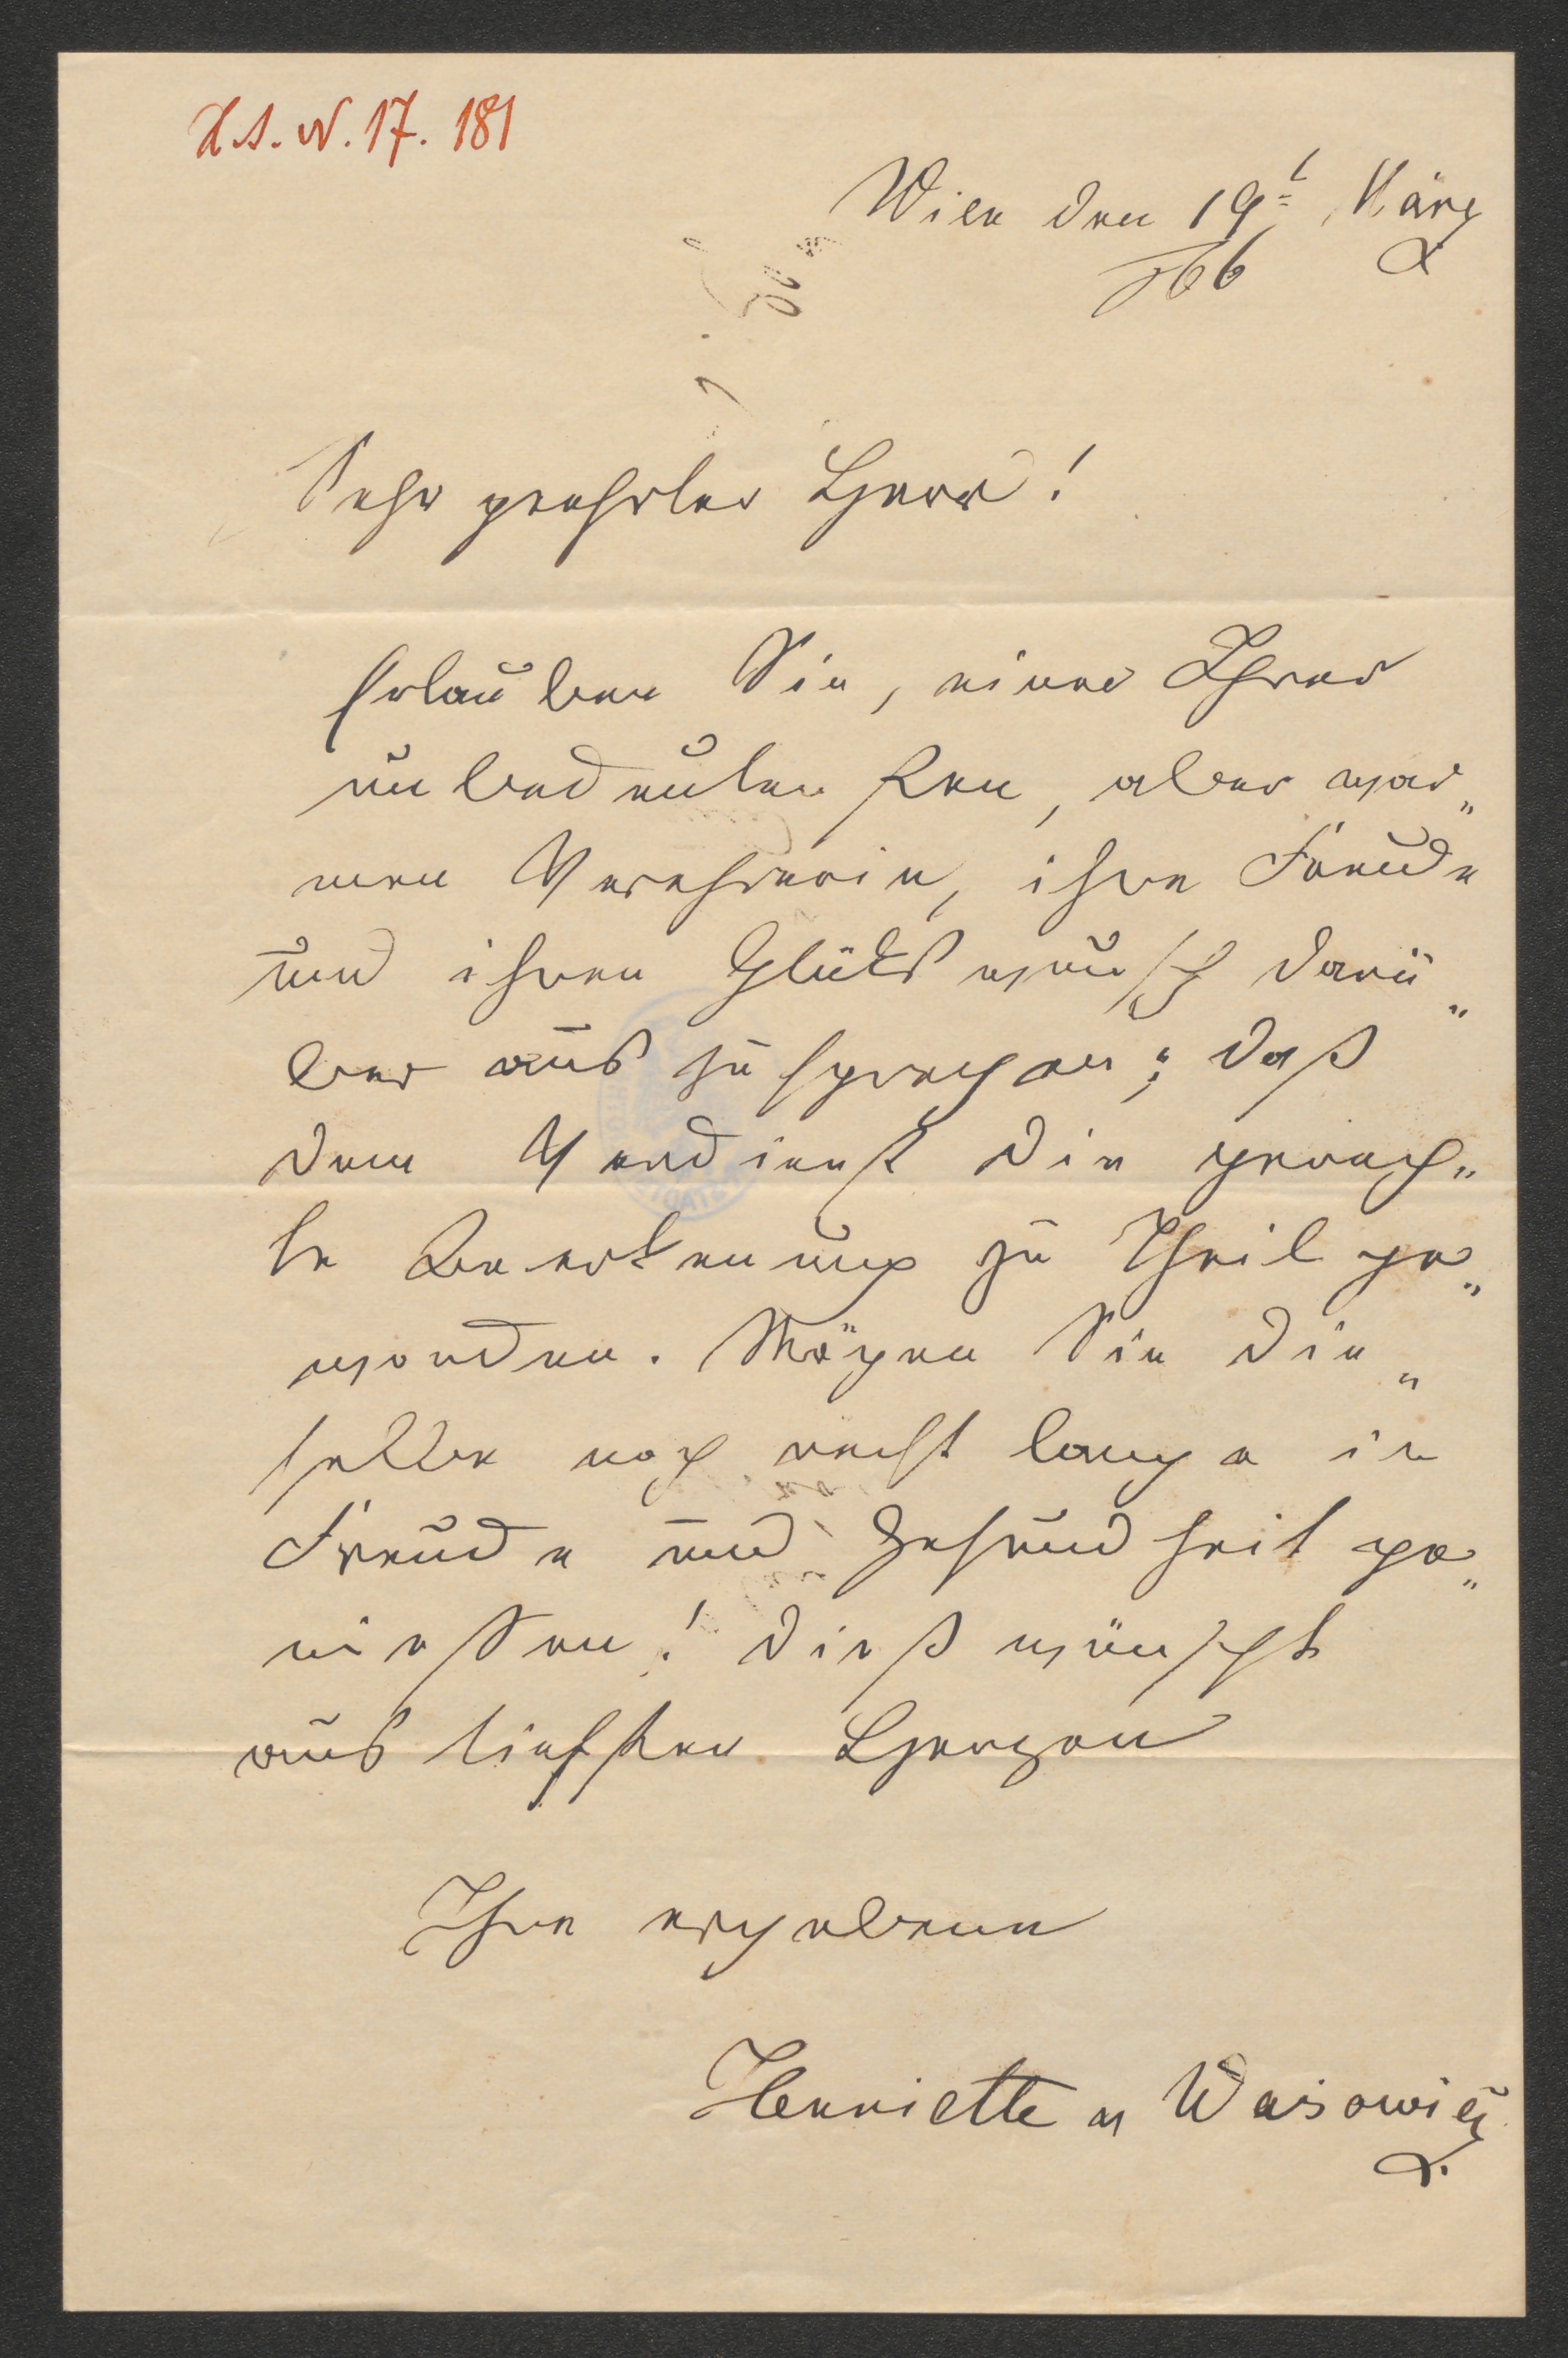 H.S.N. 17. 181
Wien den 19t März
866
Sehr geehrter Herr!
Erlauben Sie, einer Ihrer
unbedeutensten, aber war„
men Verehrerin, ihre Freude
und ihren Glückswunsch darü„
ber aus zu sprechen; daß
dem Verdienst die gerech„
te Anerkenung zu Theil ge„
worden. Mögen Sie die„
selbe noch recht lange in
Freude und Gesundheit ge„
niessen! Dieß wünscht
aus tiefsten Herzen
Ihre ergebene
Henriette v Wasowicz